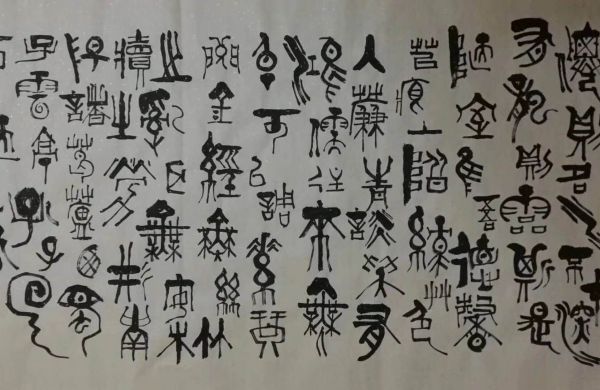 僊則名水不在深
有龍則靈斯是
陋室惟吾德馨
苔痕上階綠草色
入簾青談笑有
鴻儒往來無
白丁可以調素琴
閱金經無絲竹
之亂耳無案
牘之勞形南
陽諸葛廬西蜀
子雲亭孔子云